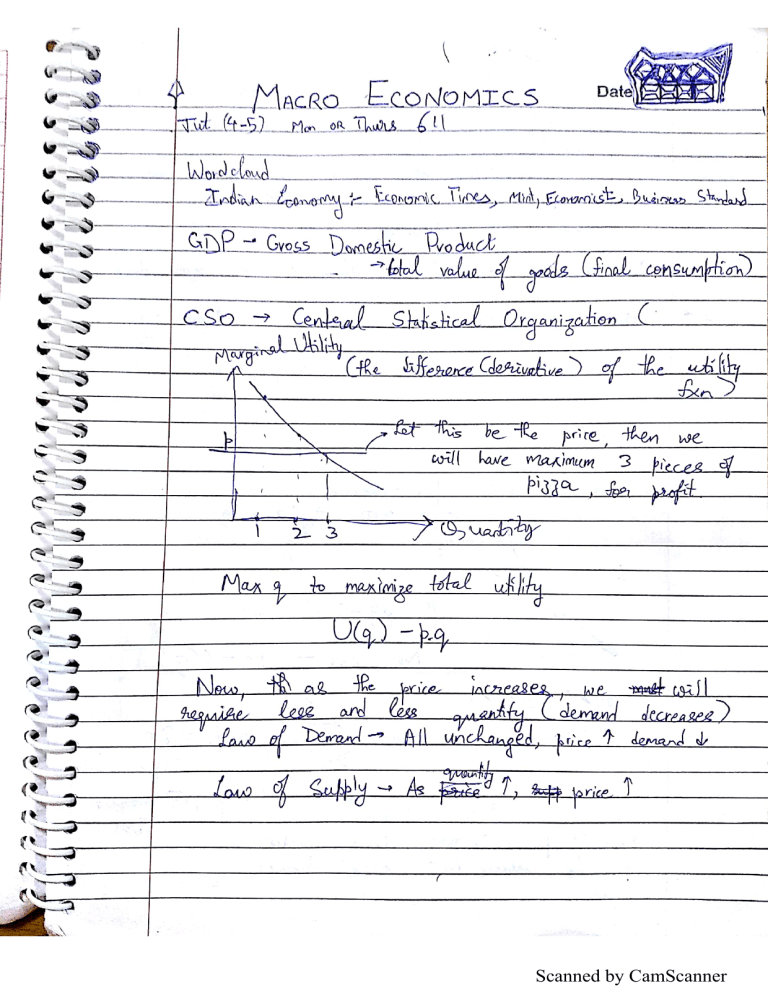 MACRO ECONOMICS
Date
Tut (4-5) Mon OR Thurs 611
Wordcloud
Indian Economy :- Economic Times, Mint, Economist, Business Standard
GDP - Gross Domestic Product
→ total value of goods (final consumption)
CSO → Central Statistical Organization (
Marginal Utility
(the difference (derivative) of the utility
fxn)
p
Let this be the price, then we
will have maximum 3 pieces of
pizza, for profit
1 2 3
Quantity
Max q to maximize total utility
U(q) - p.q
Now, as the price increases, we will
require less and less quantity (demand decreases)
Law of Demand → All unchanged, price ↑ demand ↓
quantity
Law of Supply → As price ↑, supp price ↑
Scanned by CamScanner